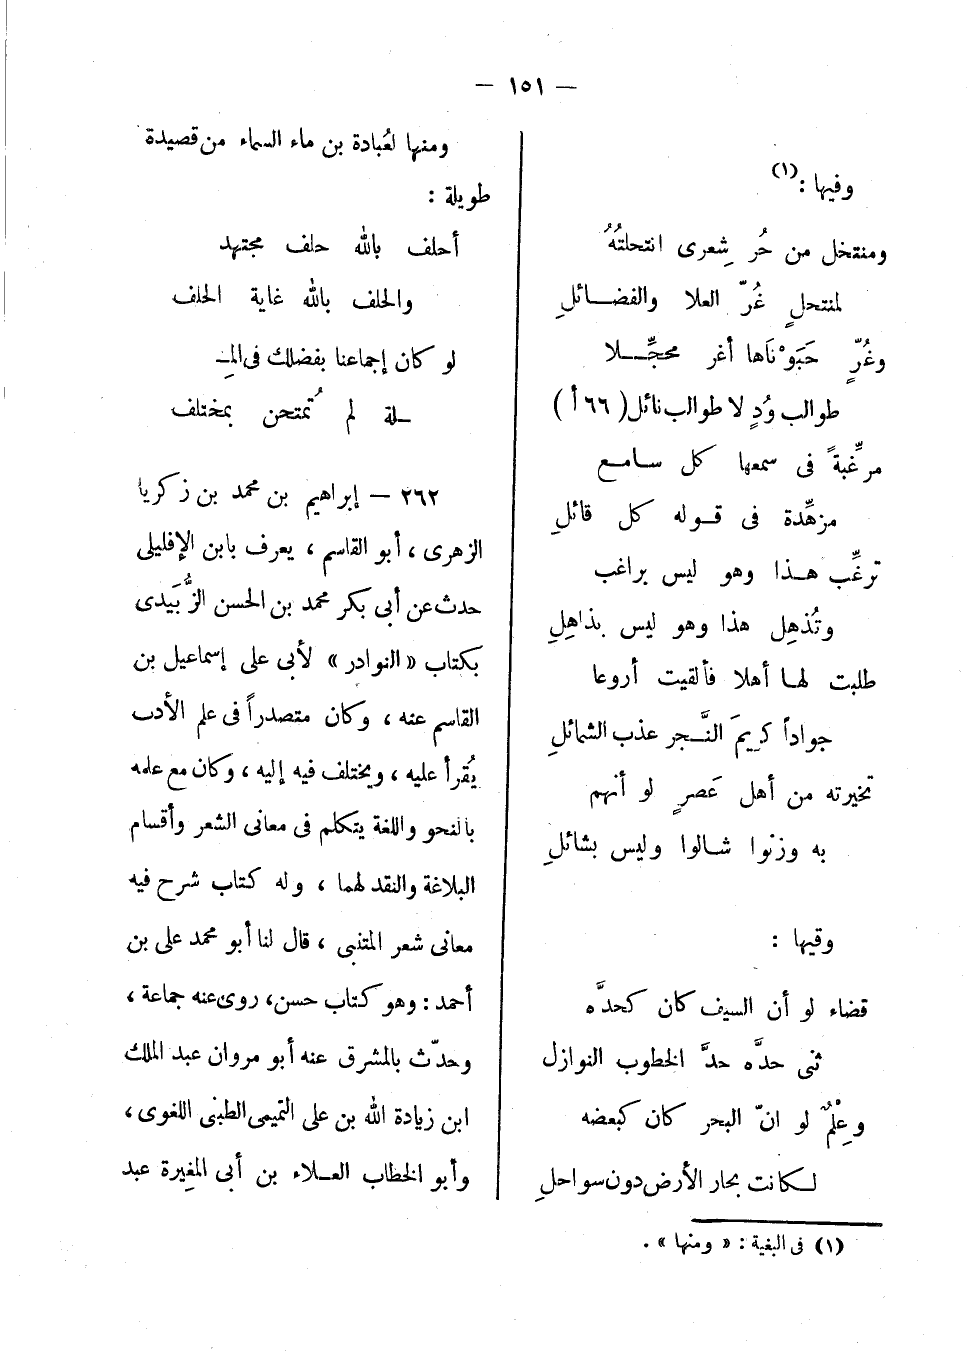 — ١٥١ —
وفيها :(١)
ومنتخل من حُر شِعرى انتحلتُهُ
لمنتحلٍ غُرّ العلا والفضائلِ
وغُرٍّ حَبَوْنَاها أغر محجَّلا
طوالب وُدٍ لا طوالب نائل (٦٦ أ)
مرغِّبةً فى سمعها كل سامع
مزهِّدة فى قوله كل قائلِ
ترغِّب هذا وهو ليس براغب
وتُذهِل هذا وهو ليس بذاهِلِ
طلبت لها أهلا فألقيت أروعا
جواداً كريمَ النَّجر عذب الشمائلِ
تخيرته من أهل عَصرٍ لو أنهم
به وزنوا شالوا وليس بشائلِ
وقيها :
قضاء لو أن السيف كان كحدَّه
ثنى حدَّه حدَّ الخطوب النوازل
وعِلْمٌ لو انّ البحر كان كبعضه
لكانت بحار الأرض دون سواحلِ
(١) فى البغية : « ومنها » .
ومنها لعُبادة بن ماء السماء من قصيدة
طويلة :
أحلف بالله حلف مجتهد
والحلف بالله غاية الحلف
لو كان إجماعنا بفضلك فى المِـ
ـلة لم تُمتحن بمختلف
٢٦٢ — إبراهيم بن محمد بن زكريا
الزهرى ، أبو القاسم ، يعرف بابن الإفليلى
حدث عن أبى بكر محمد بن الحسن الزُّبَيدى
بكتاب « النوادر » لأبى على إسماعيل بن
القاسم عنه ، وكان متصدراً فى علم الأدب
يُقرأ عليه ، ويختلف فيه إليه ، وكان مع علمه
بالنحو واللغة يتكلم فى معانى الشعر وأقسام
البلاغة والنقد لهما ، وله كتاب شرح فيه
معانى شعر المتنبى ، قال لنا أبو محمد على بن
أحمد : وهو كتاب حسن، روى عنه جماعة ،
وحدّث بالمشرق عنه أبو مروان عبد الملك
ابن زيادة الله بن على التميمى الطبنى اللغوى ،
وأبو الخطاب العلاء بن أبى المغِيرة عبد